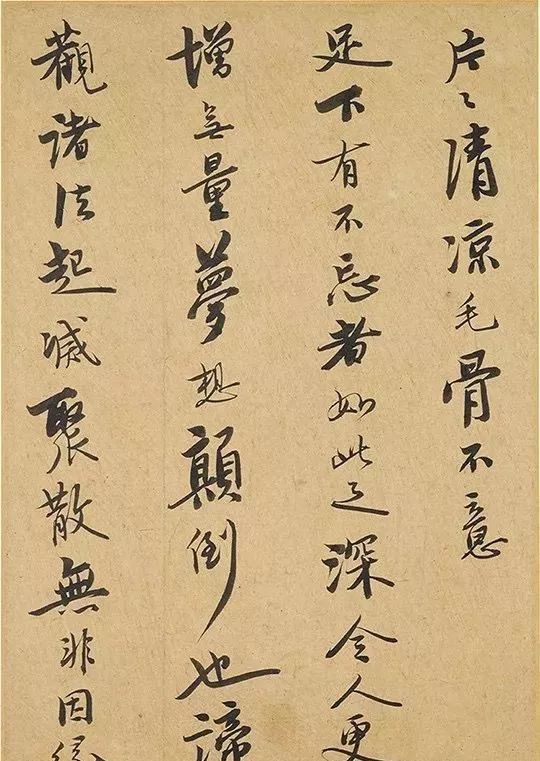 片々清凉毛骨不意
足下有不忘者如此之深令人更
增無量夢想顛倒也諦
觀諸法起滅聚散無非因緣